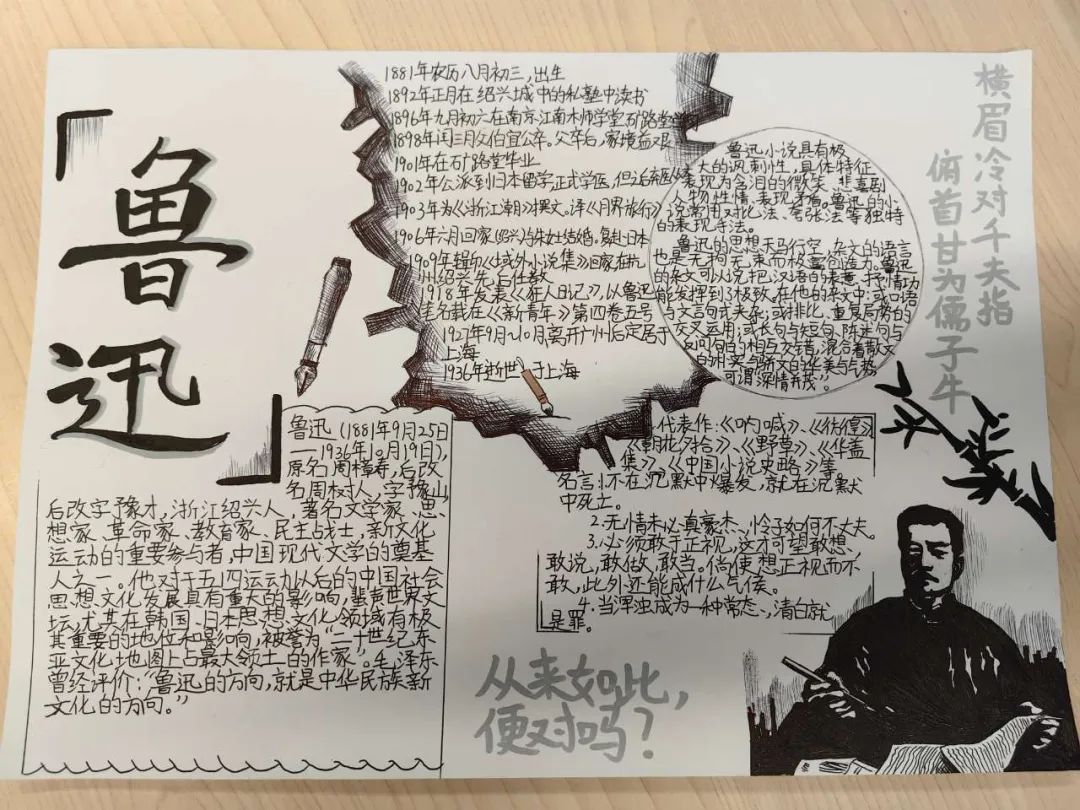 「鲁
迅」
1881年农历八月初三,出生
1892年正月在绍兴城中的私塾中读书
1896年九月初六在南京江南水师学堂矿路堂学习
1898年闰三月父伯宜公卒。父卒后,家境益艰
1901年在矿路堂毕业
1902年公派到日本留学,正式学医,但之后弃医从文
1903年为《浙江潮》撰文。译《月界旅行》
1906年六月回家(绍兴)与朱女士结婚。复赴日本
1909年辑印《域外小说集》回家在杭
州绍兴先后任教
1918年发表《狂人日记》,以鲁迅
笔名载在《新青年》第四卷五号
1927年9月~10月离开广州后定居于
上海
1936年逝世于上海
鲁迅小说具有极
大的讽刺性,具体特征
表现为含泪的微笑、悲喜剧
人物性情表现矛盾。鲁迅的小
说常用对比法、夸张法等独特
的表现手法。
鲁迅的思想天马行空,杂文的语言
也是无拘无束而极喜创造力。鲁迅
的杂文可以说把汉语的表意、抒情功
能发挥到了极致。在他的杂文中:或口语
与文言句式夹杂;或排比、重复句势的
交叉运用;或长句与短句、陈述句与
反问句的相互交错,混合着散文
的朴实与骈文的华美与气势,
可谓"深情并茂"。
横眉冷对千夫指
俯首甘为儒子牛
鲁迅(1881年9月25日
—1936年10月19日),
原名周樟寿,后改
名周树人,字豫山,
后改字豫才,浙江绍兴人,著名文学家、思
想家、革命家、教育家、民主战士,新文化
运动的重要参与者,中国现代文学的奠基
人之一。他对于五四运动以后的中国社会
思想文化发展具有重大的影响,蜚声世界文
坛,尤其在韩国、日本思想、文化领域有极
其重要的地位和影响,被誉为"二十世纪东
亚文化地图上占最大领土的作家"。毛泽东
曾经评价:"鲁迅的方向,就是中华民族新
文化的方向。"
代表作:《呐喊》、《彷徨》
《朝花夕拾》、《野草》、《华盖
集》、《中国小说史略》等。
名言:1.不在沉默中爆发,就在沉默
中死亡。
2.无情未必真豪杰、怜子如何不丈夫。
3.必须敢于正视,这才可望敢想、
敢说,敢做,敢当。倘使想正视而不
敢,此外还能成什么气候。
4.当浑浊成为一种常态,清白就
是罪。
从来如此,
便对吗?